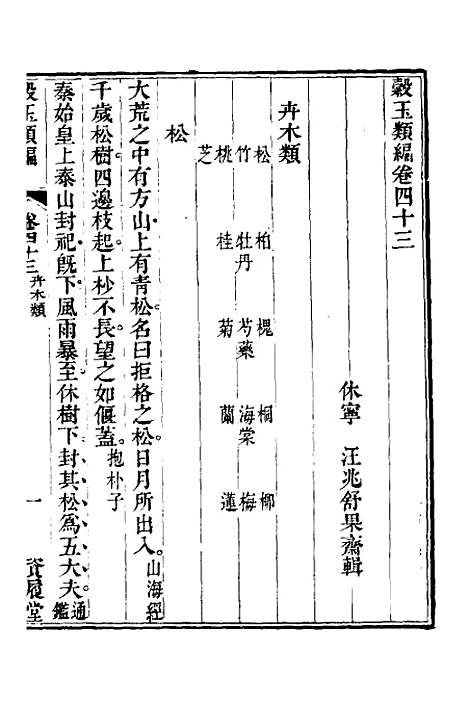 穀玉類編卷四十三
休寧　汪兆舒果齋輯
卉木類
松　柏　槐　桐　柳
竹　牡丹　芍藥　海棠　梅
桃　桂　菊　蘭　蓮
芝
松
大荒之中有方山上有青松名曰拒格之松日月所出入山海經
千歲松樹四邊枝起上杪不長望之如偃蓋抱朴子
秦始皇上泰山封祀旣下風雨暴至休樹下封其松爲五大夫通鑑
穀玉類編　卷四十三　卉木類　一　資履堂